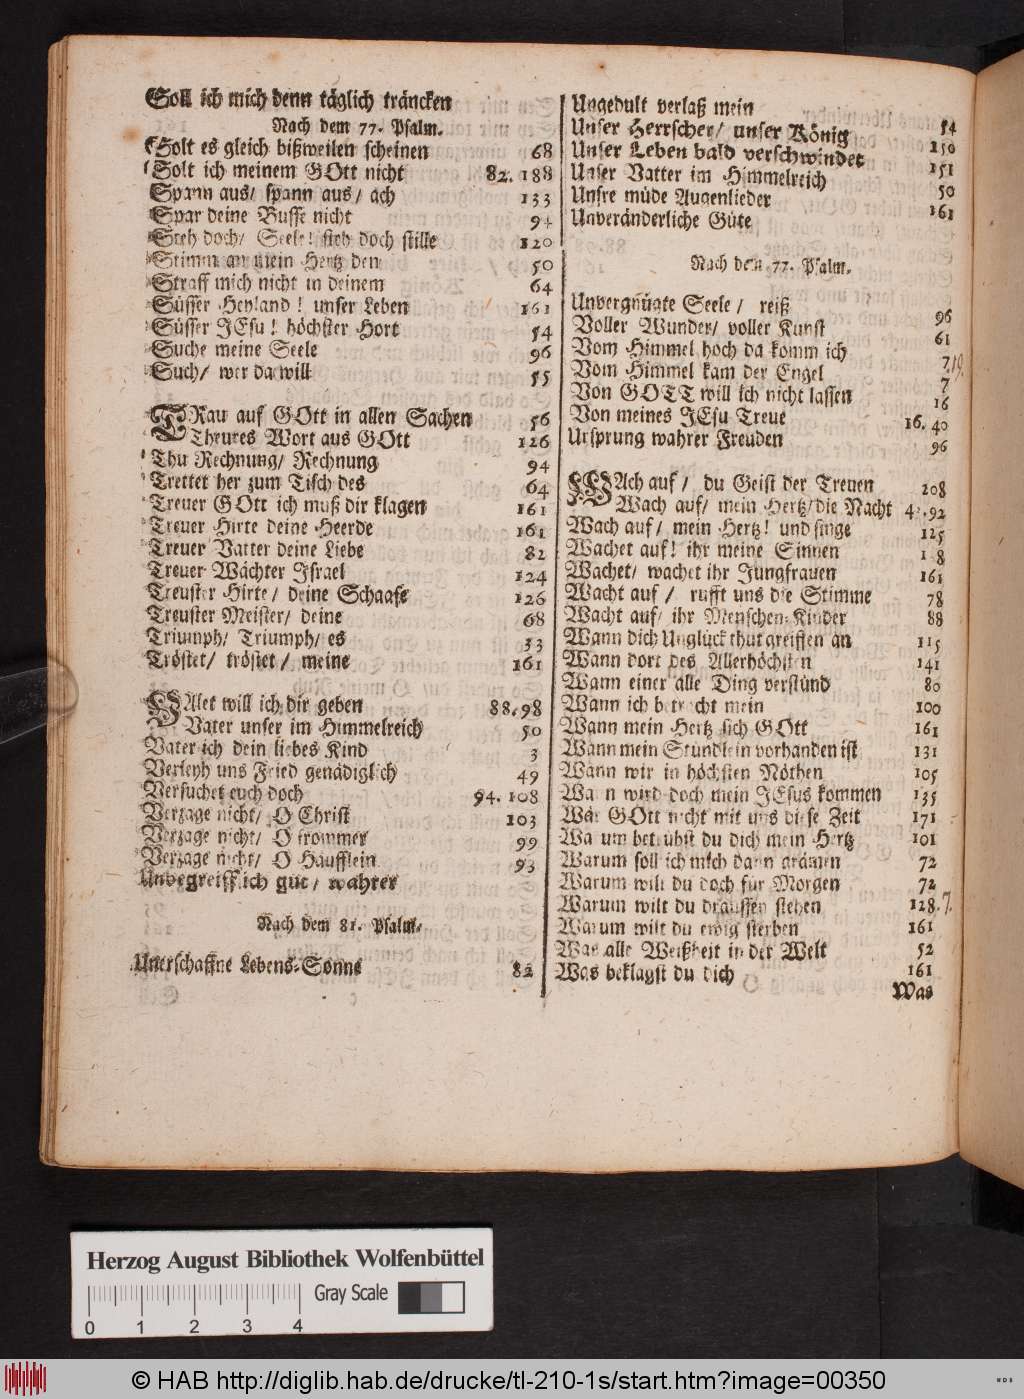 Soll ich mich denn täglich kräncken
Nach dem 77. Psalm.
Solt es gleich bißweilen scheinen 68
Solt ich meinem GOtt nicht 82. 188
Spann aus/ spann aus/ ach 133
Spar deine Busse nicht 94
Steh doch/ Seele! steh doch stille 120
Stimm an mein Hertz den 50
Straff mich nicht in deinem 64
Süsser Heyland! unser Leben 161
Süsser JEsu! höchster Hort 54
Suche meine Seele 96
Such/ wer da will 55
TRau auf GOtt in allen Sachen 56
Theures Wort aus GOtt 126
Thu Rechnung/ Rechnung 94
Trettet her zum Tisch des 64
Treuer GOtt ich muß dir klagen 161
Treuer Hirte deine Heerde 161
Treuer Vatter deine Liebe 82
Treuer Wächter Israel 124
Treuster Hirte/ deine Schaafe 126
Treuster Meister/ deine 68
Triumph/ Triumph/ es 33
Tröstet/ tröstet/ meine 161
VAlet will ich dir geben 88. 98
Vater unser im Himmelreich 50
Vater ich dein liebes Kind 3
Verleyh uns Fried genädiglich 49
Versuchet euch doch 94. 108
Verzage nicht/ O Christ 103
Verzage nicht/ O frommer 99
Verzage nicht/ O Häufflein 93
Unbegreifflich gut/ wahrer
Nach dem 81. Psalm.
Unerschaffne Lebens-Sonne 82
Ungedult verlaß mein 54
Unser Herrscher/ unser König 150
Unser Leben bald verschwindet 151
Unser Vatter im Himmelreich 50
Unsre müde Augenlieder 161
Unveränderliche Güte
Nach dem 77. Psalm.
Unvergnügte Seele/ reiß 96
Voller Wunder/ voller Kunst 61
Vom Himmel hoch da komm ich 7.19.
Vom Himmel kam der Engel 7
Von GOTT will ich nicht lassen 16
Von meines JEsu Treue 16. 40
Ursprung wahrer Freuden 96
WAch auf/ du Geist der Treuen 208
Wach auf/ mein Hertz/ die Nacht 92
Wach auf/ mein Hertz! und singe 125
Wachet auf! ihr meine Sinnen
Wachet/ wachet ihr Jungfrauen 161
Wacht auf/ rufft uns die Stimme 78
Wacht auf/ ihr Menschen-Kinder 88
Wann dich Unglück thut greiffen an 115
Wann dort des Allerhöchsten 141
Wann einer alle Ding verstünd 80
Wann ich betracht mein 100
Wann mein Hertz sich GOtt 161
Wann mein Stündlein vorhanden ist 131
Wann wir in höchsten Nöthen 105
Wann wird doch mein JEsus kommen 135
Wär GOtt nicht mit uns diese Zeit 171
Warum betrübst du dich mein Hertz 101
Warum soll ich mich dann grämen 72
Warum wilt du doch für Morgen 72
Warum wilt du draussen stehen 128. 7.
Warum wilt du ewig sterben 161
Was alle Weißheit in der Welt 52
Was beklagst du dich 161
Was
Herzog August Bibliothek Wolfenbüttel
Gray Scale
0 1 2 3 4
© HAB http://diglib.hab.de/drucke/tl-210-1s/start.htm?image=00350